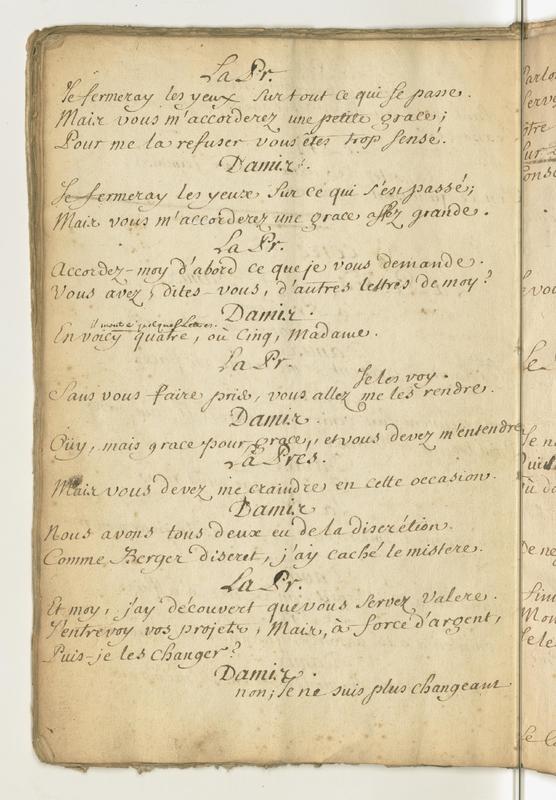 La Pr.
Je fermeray les yeux sur tout ce qui se passe.
Mais vous m'accorderez une petite grace;
Pour me la refuser vous êtes trop sensé.
Damis.
Je fermeray les yeux sur ce qui s'est passé;
Mais vous m'accorderez une grace assez grande.
La Pr.
Accordez-moy d'abord ce que je vous demande.
Vous avez, dites-vous, d'autres lettres de moy?
Damis.
il montre quelques Lettres.
En voicy quatre, où cinq, Madame.
La Pr.
Je les voy.
Sans vous faire prier, vous allez me les rendre.
Damis.
Oüy, mais grace pour grace, et vous devez m'entendre
La Pres.
Mais vous devez me craindre en cette occasion.
Damis
Nous avons tous deux eu de la discrétion.
Comme Berger discret, j'ay caché le mistere.
La Pr.
Et moy, j'ay découvert que vous servez Valere.
J'entrevoy vos projets, Mais, à force d'argent,
Puis-je les changer?
Damis.
non; Je ne suis plus changeant
Parlo
Serve
Sur
Conse
Je n
De ne
Mon